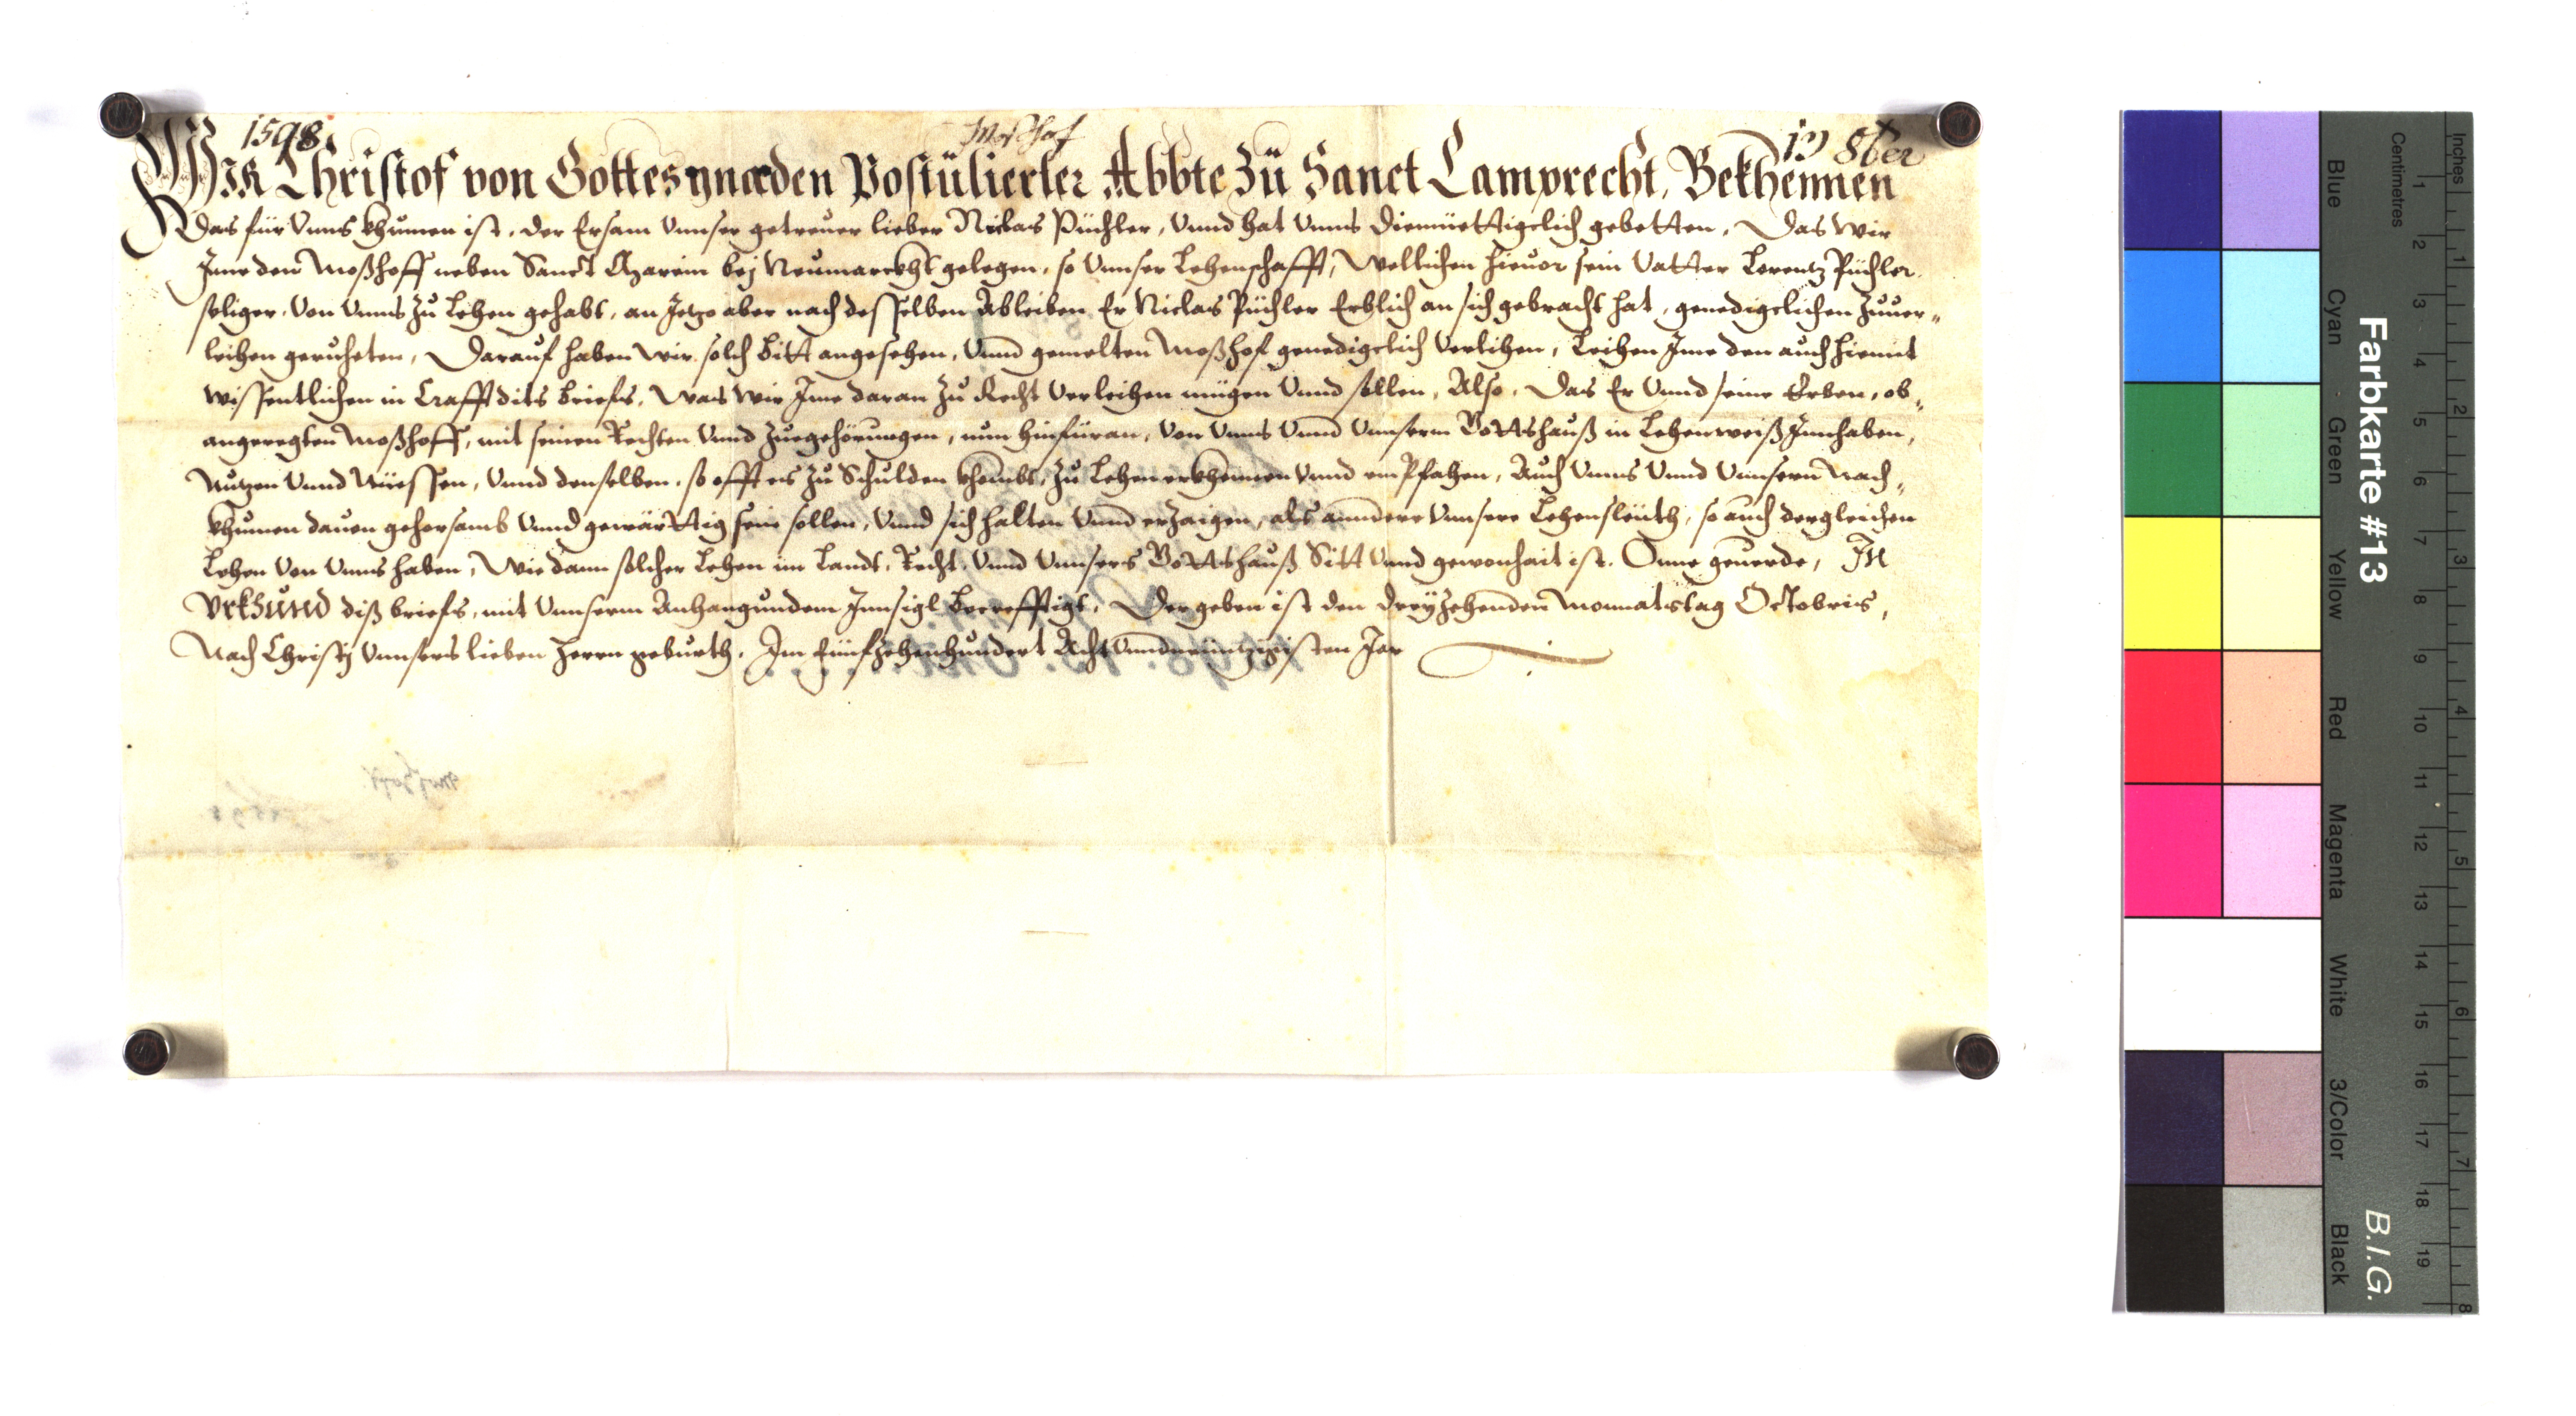 1598.
Moßhof
13 8ber
Wir Christof von Gottes gnaden Postulierter Abbte zu Sanct Lamprecht, Bekhennen
Das für Vnns khumen ist, der Ersam Vnnser getreuer lieber Niclas Püchler, Vnnd hat Vnns diemüettigclich gebetten, Das wir
Ime den Moßhoff neben Sanct Marein bej Neumarckht gelegen, so Vnnser Lehenschafft, Wellichen hieuor sein Vatter Lorentz Püchler
seliger, Von Vnns zu Lehen gehabt, an Jetzo aber nach desselben Ableiben Er Niclas Püchler Erblich an sich gebracht hat, genedigclichen zuuer„
leihen geruheten, Darauf haben wir solch bitt angesehen, Vnnd gemelten Moßhof genedigclich Verlihen, Leihen Ime den auch hiemit
wissentlichen in Crafft dits briefs, Was wir Ime daran zu Recht Verleihen mügen Vnnd sollen, Also, Das Er Vnnd seine Erben, ob„
angeregten Moßhoff, mit seinen Rechten Vnnd Zuegehörungen, nun hinfüran, Von Vnns Vnnd Vnnserm Gottshauß in Lehensweiß Innhaben,
Nutzen Vnnd Nüessen, Vnnd denselben, so offt es zu Schulden khombt, zu Lehen erkhennen Vnnd empfahen, Auch Vnns Vnnd Vnnsern Nach„
khumen dauon gehorsamb Vnnd gewärttig sein sollen, Vnnd sich halten Vnnd erzaigen, als anndere Vnnsere Lehensleüth, so auch dergleichen
Lehen Von Vnns haben, Wie dann solcher Lehen im Landt, Recht, Vnnd Vnnsers Gottshauß Sitt Vnnd gewonhait ist. Onne geuerde, In
Vrkhund diß briefs, mit Vnnserm Anhangundem Innsigl becrefftigt, Der geben ist den dreyzehenden Monnatstag Octobris,
Nach Christj Vnnsers lieben Herrn geburth, Im Fünfzehenhundert Acht Vnndneüntzigisten Jar
Moßhoff
1598
Farbkarte #13
B.I.G.
Inches
Centimetres
1 2 3 4 5 6 7 8
1 2 3 4 5 6 7 8 9 10 11 12 13 14 15 16 17 18 19
Blue
Cyan
Green
Yellow
Red
Magenta
White
3/Color
Black